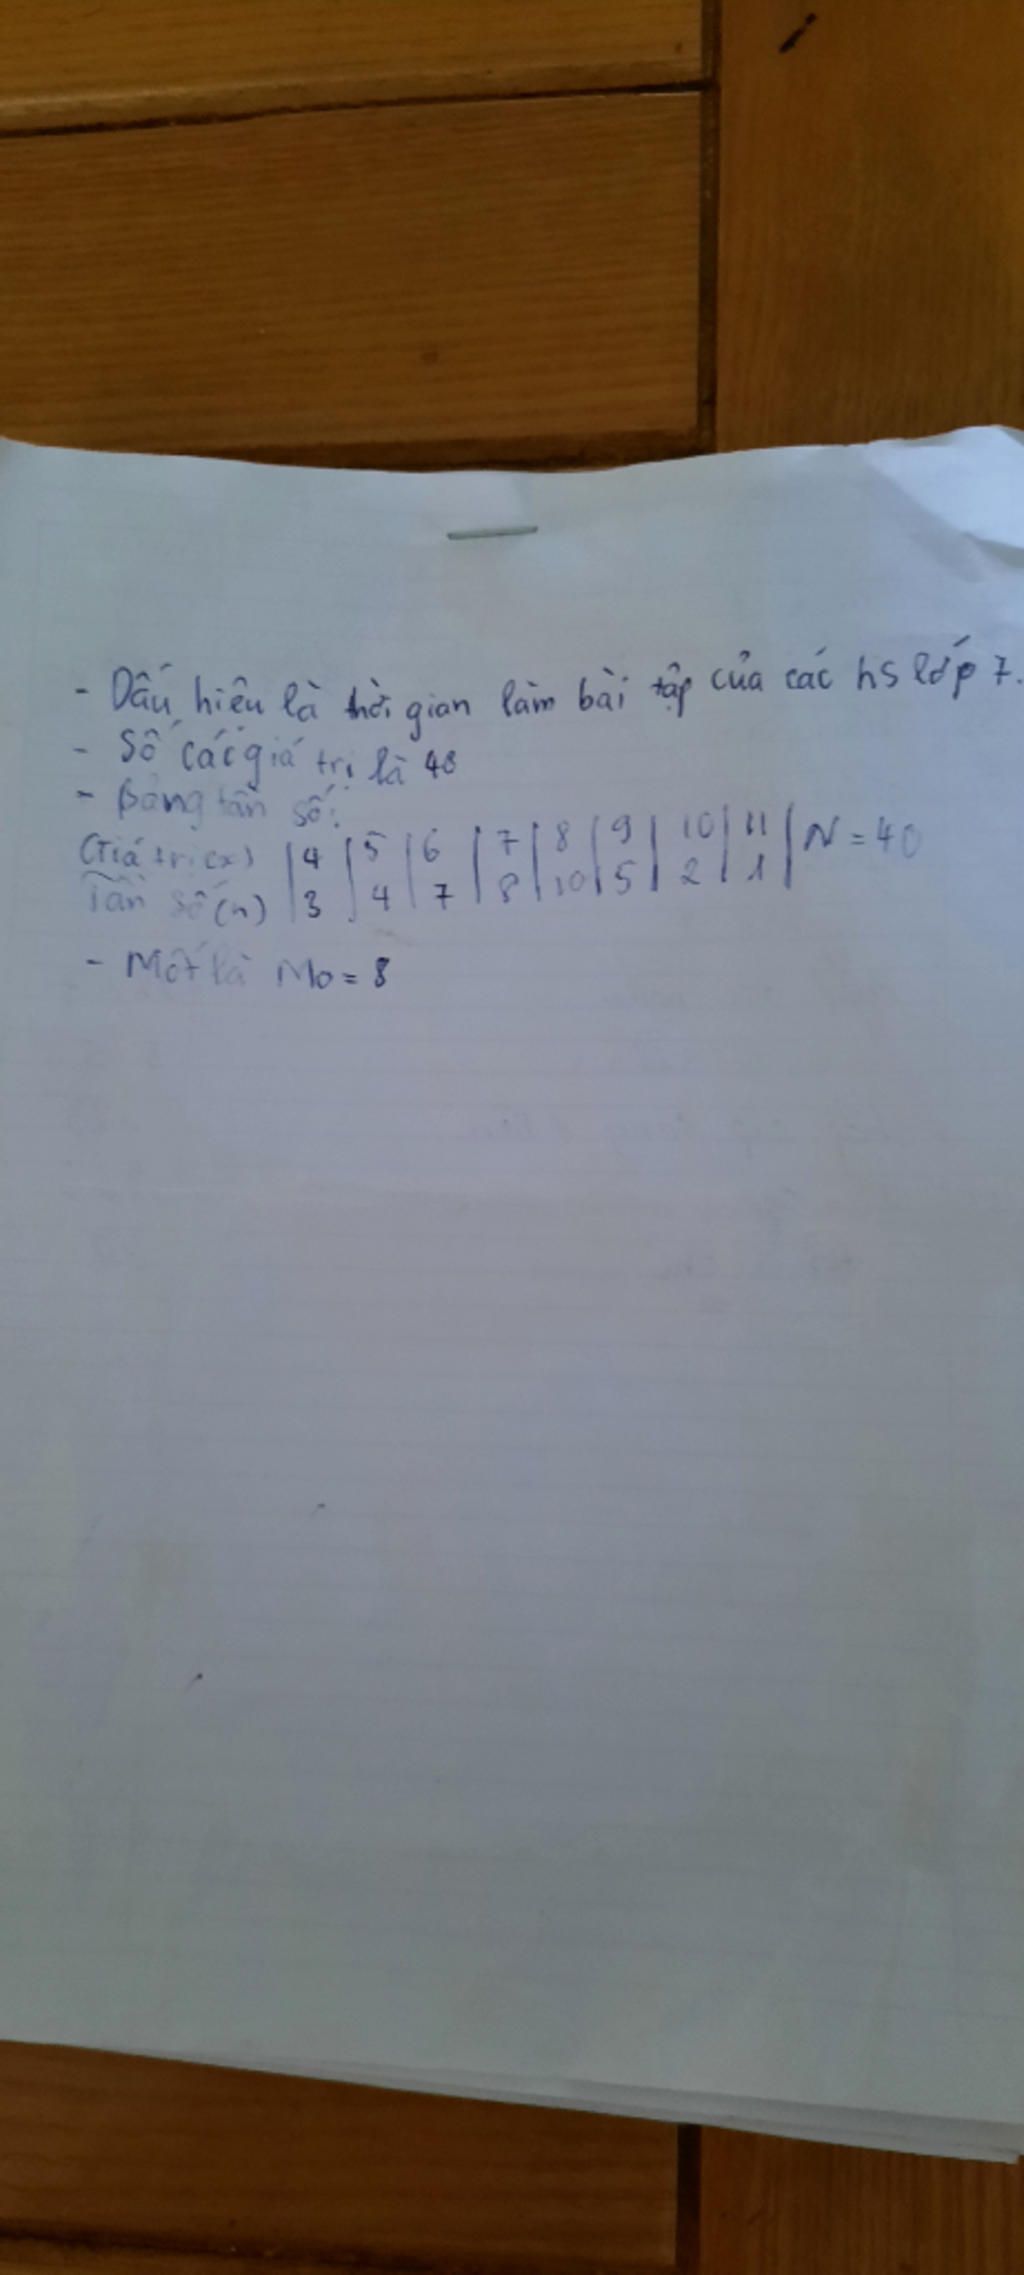 - Dấu hiệu là thời gian làm bài tập của các hs lớp 7.
- Số các giá trị là 40
- Bảng tần số:
Giá trị (x) | 4 | 5 | 6 | 7 | 8 | 9 | 10 | 11 | N = 40
Tần số (n) | 3 | 4 | 7 | 8 | 10 | 5 | 2 | 1 |
- Mốt là Mo = 8